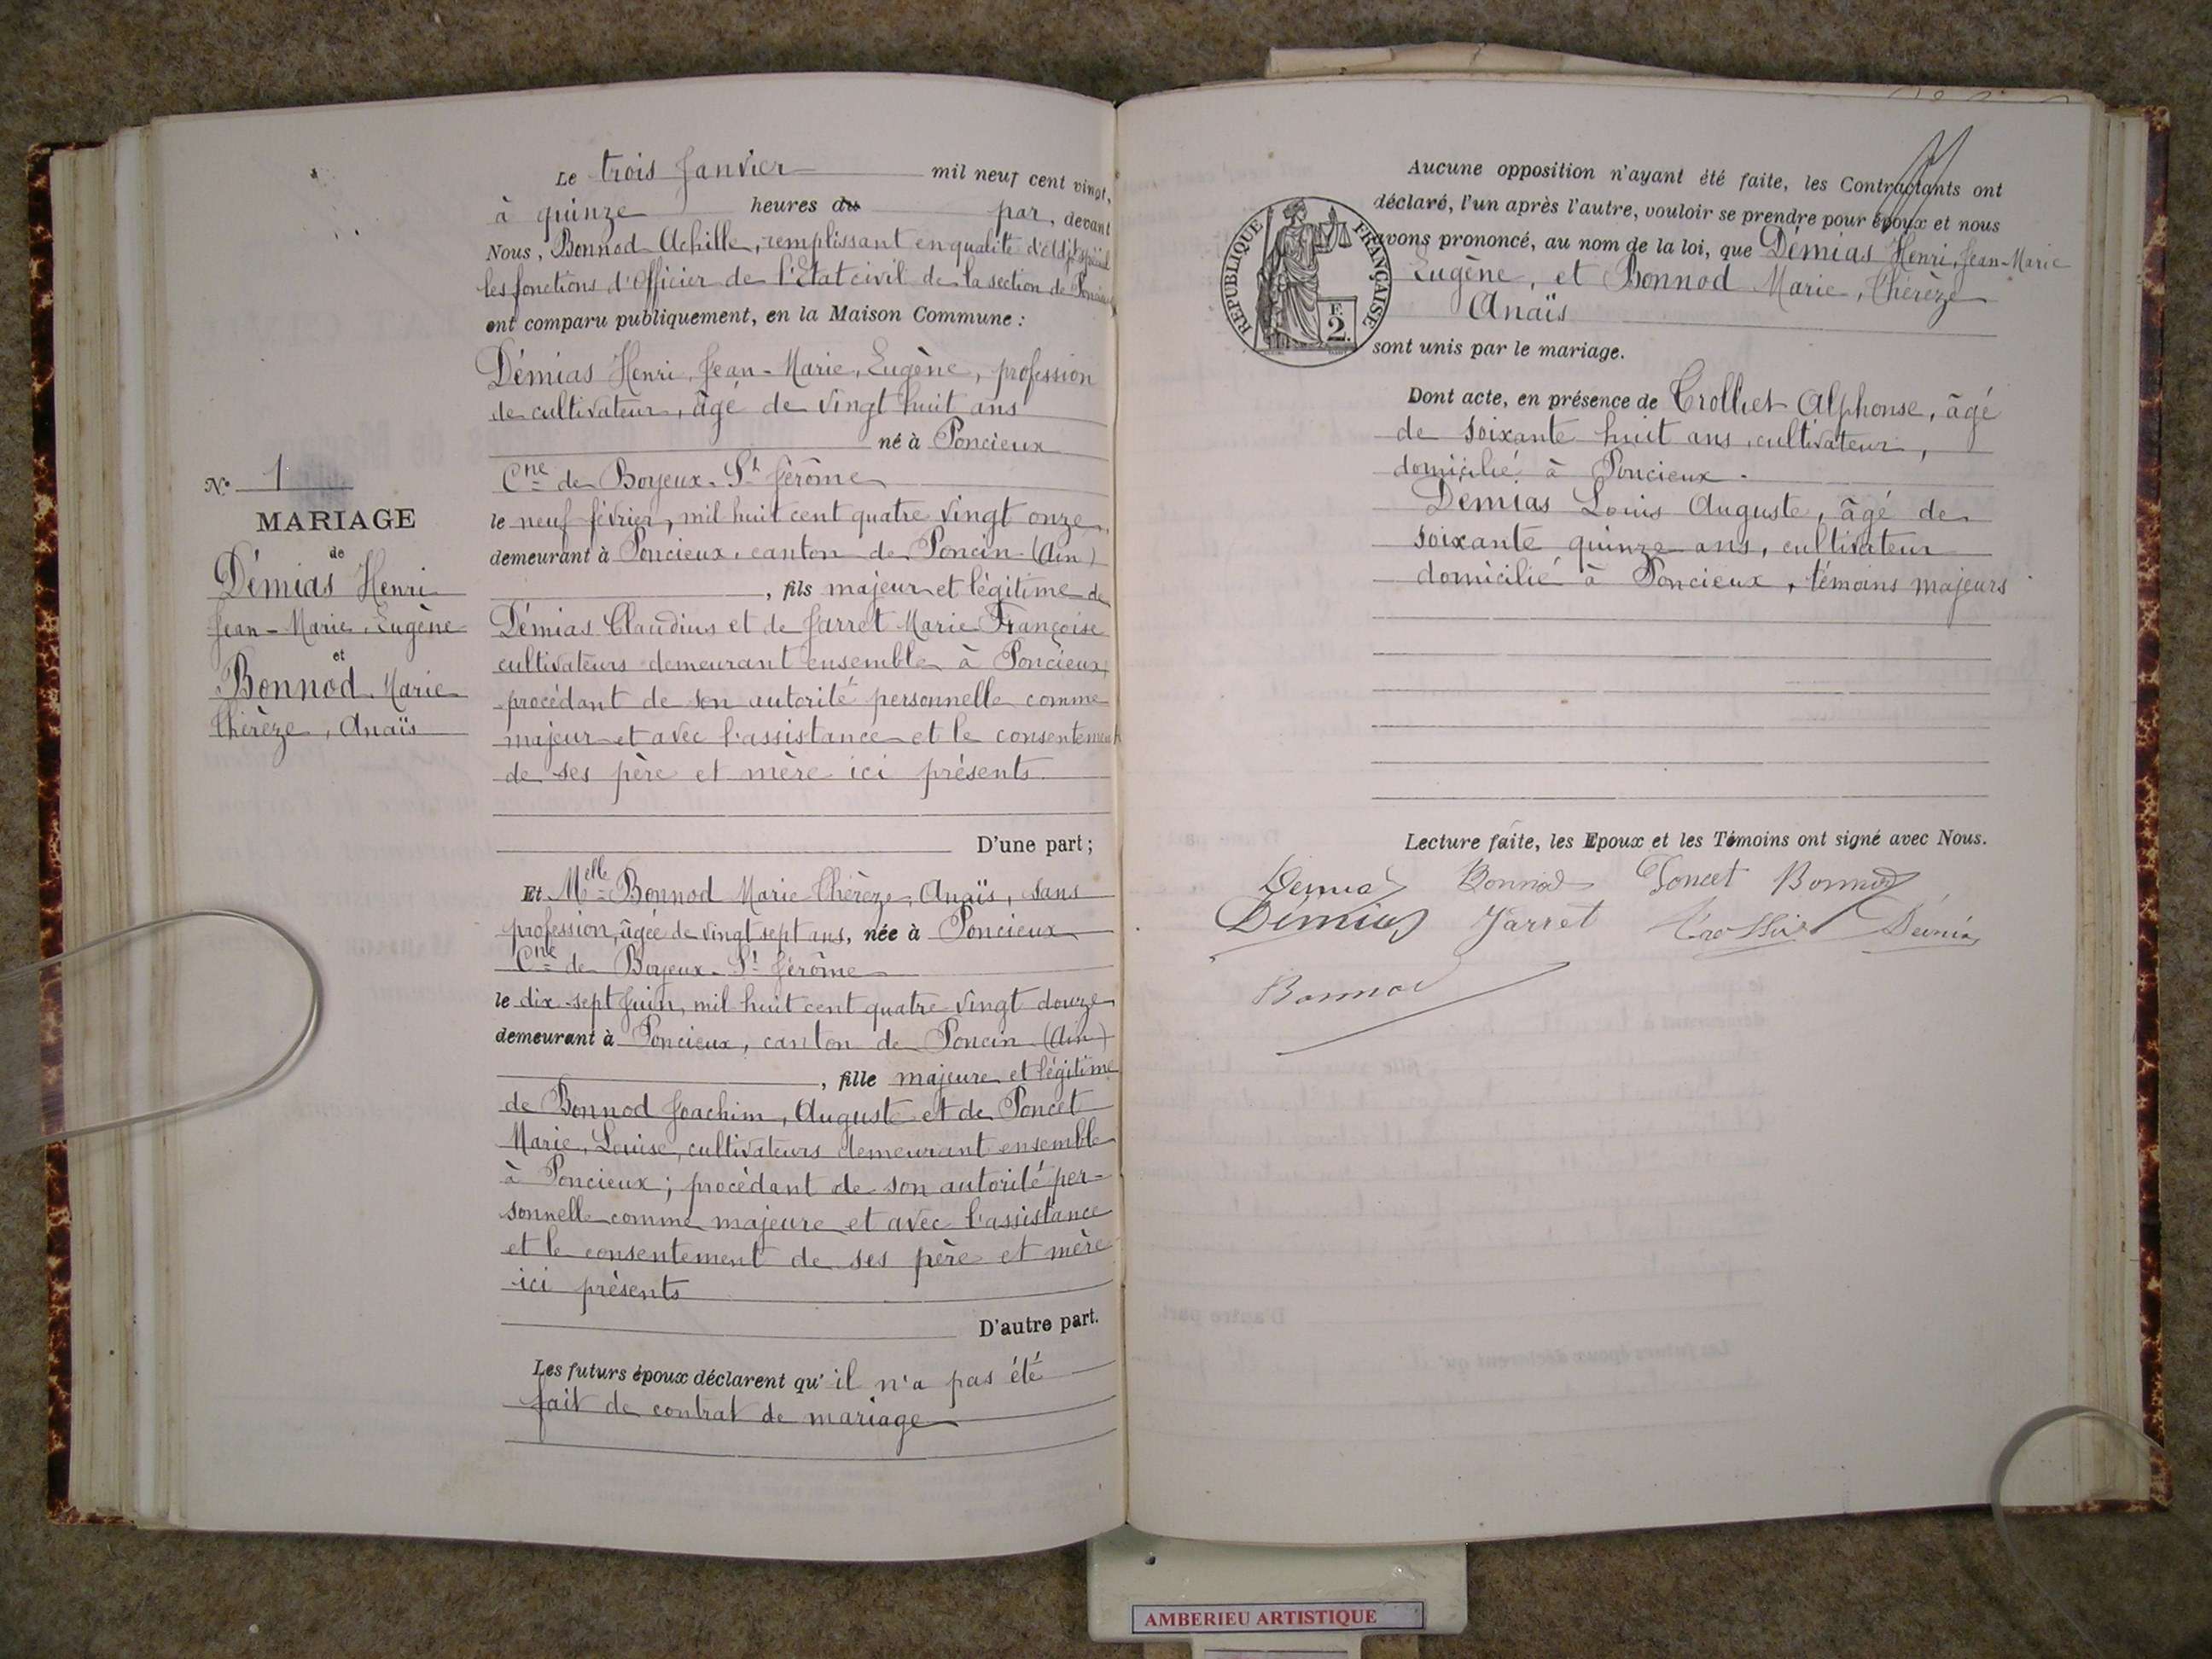 Le trois Janvier mil neuf cent vingt,
à quinze heures du par, devant
Nous, Bonnod Achille, remplissant en qualité d'adjt spécial
les fonctions d'Officier de l'Etat civil de la section de
ont comparu publiquement, en la Maison Commune :
Démias Henri, Jean-Marie, Eugène, profession
de cultivateur, âgé de vingt huit ans
né à Poncieux
Cne de Boyeux-St Jérôme
le neuf février, mil huit cent quatre vingt onze,
demeurant à Poncieux, canton de Poncin (Ain)
, fils majeur et légitime de
Démias Claudius et de Jarret Marie Françoise
cultivateurs demeurant ensemble à Poncieux,
procédant de son autorité personnelle comme
majeur et avec l'assistance et le consentement
de ses père et mère ici présents
D'une part ;
Et Melle Bonnod Marie Thérèze, Anaïs, sans
profession, âgée de vingt sept ans, née à Poncieux
Cne de Boyeux-St Jérôme
le dix-sept Juin, mil huit cent quatre vingt douze
demeurant à Poncieux, canton de Poncin (Ain)
, fille majeure et légitime
de Bonnod Joachim, Auguste et de Poncet
Marie, Louise, cultivateurs demeurant ensemble
à Poncieux ; procédant de son autorité per-
sonnelle comme majeure et avec l'assistance
et le consentement de ses père et mère
ici présents
D'autre part.
Les futurs époux déclarent qu' il n'a pas été
fait de contrat de mariage
No 1
MARIAGE
de
Démias Henri
Jean-Marie, Eugène
et
Bonnod Marie
Thérèze, Anaïs
Aucune opposition n'ayant été faite, les Contractants ont
déclaré, l'un après l'autre, vouloir se prendre pour époux et nous
avons prononcé, au nom de la loi, que Démias Henri, Jean-Marie
Eugène, et Bonnod Marie, Thérèze
Anaïs
sont unis par le mariage.
REPUBLIQUE FRANÇAISE
F.
2.
Dont acte, en présence de Trolliet Alphonse, âgé
de soixante huit ans, cultivateur,
domicilié à Poncieux.
Démias Louis Auguste, âgé de
soixante quinze ans, cultivateur
domicilié à Poncieux, témoins majeurs
Lecture faite, les Epoux et les Témoins ont signé avec Nous.
Demias Bonnod Poncet Bonnod
Démias Jarret Trolliet Démias
Bonnod
AMBERIEU ARTISTIQUE